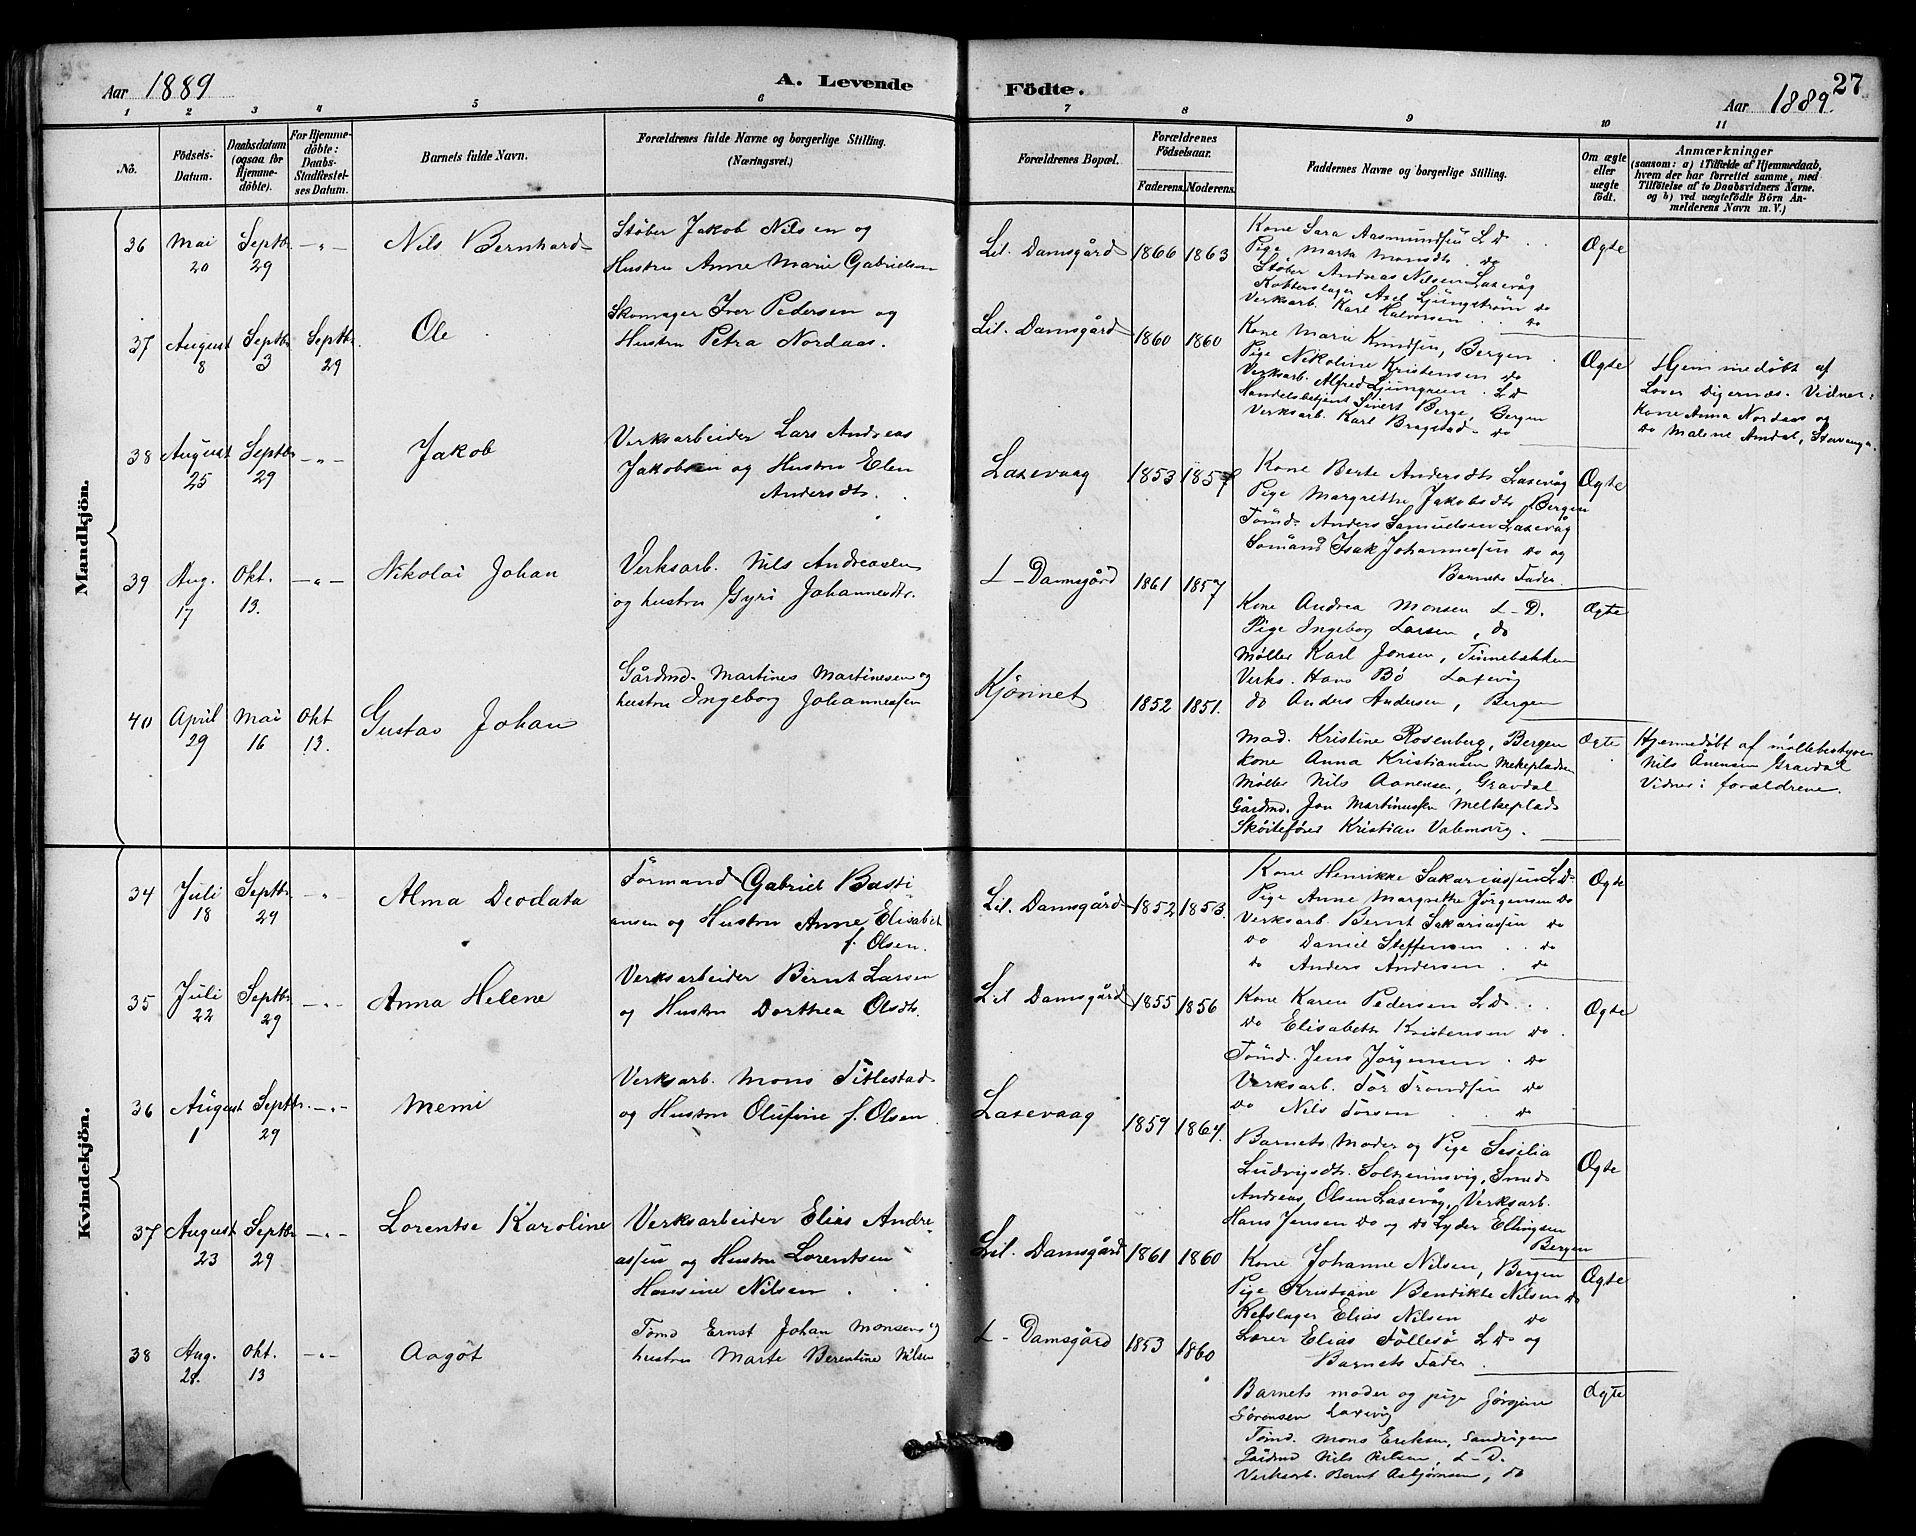 Aar 1889
A. Levende
Födte.
27
Aar 1889.
1 2 3 4 5 6 7 8 9 10 11
No.
Födsels-
Datum.
Daabsdatum
(ogsaa for
Hjemme-
döbte).
For Hjemme-
döbte:
Daabs-
Stadfæstel-
ses Datum.
Barnets fulde Navn.
Forældrenes fulde Navne og borgerlige Stilling.
(Næringsvei.)
Forældrenes Bopæl.
Forældrenes
Födselsaar.
Faderens. Moderens.
Faddernes Navne og borgerlige Stilling.
Om ægte
eller
uægte
födt.
Anmærkninger
(saasom: a) i Tilfælde af Hjemmedaab,
hvem der har forrettet samme, med
Tilföielse af to Daabsvidners Navne.
og b) ved uægtefödte Börn An-
melderens Navn m. V.)
Mandkjön.
36 Mai 20 Septbr 29 -"- Nils Bernhard
Støber Jakob Nilsen og
Hustru Anne Marie Gabrielsen
Lil. Damsgård 1866 1863
Kone Sara Aasmundsen L D.
Pige Marta Monsdtr. do
Støber Andreas Nilsen Laxevåg
Kobberslager Axel Ljungstrøm do
Verksarb. Karl Halvorsen do
Ægte
37 August 8 Septbr 3 Septbr. 29 Ole
Skomager Iver Pedersen og
Hustru Petra Nordaas.
Lil. Damsgård 1860 1860
Kone Marie Knudsen, Bergen
Pige Nikoline Kristensen do
Verksarb. Alfred Ljungreen. L D
Handelsbetjent Sivert Berge, Bergen
Verksarb. Karl Bragstad do
Ægte
Hjemmedøbt af
Lærer Digernes. Vidner:
Kone Anna Nordaas og
do Malene Amdal, Stavanger.
38 August 25 Septbr 29 -"- Jakob
Verksarbeider Lars Andreas
Jakobsen og Hustru Elen
Andersdtr.
Laxevaag 1853 1857
Kone Berte Andersdtr Laxevåg
Pige Margrethe Jakobsdtr Bergen
Tømd. Anders Samuelsen Laxevåg
Sømand Isak Johannessen do og
Barnets Fader
Ægte
39 Aug. 17 Okt. 13. -"- Nikolai Johan
Verksarb. Nils Andreasen
og hustru Gyri Johannesdtr.
L-Damsgård 1861 1857
Kone Andrea Monsen L-D.
Pige Ingeborg Larsen, do
Møller Karl Jonsen, Tinnebakken
Verks. Hans Bö Laxevåg
do Anders Andersen, Bergen
Ægte
40 April 29 Mai 16 Okt 13. Gustav Johan
Gårdmd. Martines Martinesen og
hustru Ingeborg Johannessen
Kjørinet 1852 1851.
Mad. Kristine Rosenberg, Bergen
Kone Anna Kristiansen Melkepladsen
Møller Nils Aanensen, Gravdal
Gårdmd. Jon Martinussen Melkeplads
Skøitefører Kristian
Ægte
Hjemmedøbt af møllebestyrer
Nils Ånensen Gravdal
Vidner: forældrene.
Kvindekjön.
34 Juli 18 Septbr 29 -"- Alma Deodata
Formand Gabriel Basti
ansen og Hustru Anne Elisabet
f. Olsen.
Lil. Damsgård 1852 1853.
Kone Henrikke Sakariassen L D.
Pige Anne Margrethe Jørgensen do
Verksarb Bernt Sakariassen do
do Daniel Steffensen do
do Anders Andersen. do
Ægte
35 Juli 22 Septbr 29 -"- Anna Helene
Verksarbeider Bernt Larsen
og Hustru Dorthea Olsdtr.
Lil Damsgård 1855 1856
Kone Karen Pedersen L D.
do Elisabeth Kristensen do.
Tømd. Jens Jørgensen. do
Verksarb. Tor Trondsen do
do Nils Torsen do
Ægte
36 August 1 Septbr. 29 -"- Memi
Verksarb. Mons Titlestad
og Hustru Olufine f. Olsen
Laxevaag 1859 1864.
Barnets Moder og Pige Sesilia
Ludvigsdtr. Solheimsvig, Smed
Andreas Olsen Laxevåg, Verksarb.
Hans Jensen do og do Lyder Ellingsen
Bergen
Ægte
37 August 23 Septbr 29 -"- Lorentse Karoline
Verksarbeider Elias Andre-
assen og Hustru Lorentsen
Hansine Nilsen
Lil. Damsgård 1861 1860
Kone Johanne Nilsen, Bergen
Pige Kristiane Bendikte Nilsen do
Rebslager Elias Nilsen do
Lærer Elias Föllesö L D. og
Barnets Fader
Ægte
38 Aug. 28. Okt. 13 -"- Aagot
Tømd Ernst Johan Monsen og
hustru Marte Berentine Nilsen
L-Damsgård 1853 1860
Barnets moder og pige Jørgine
Sørensen Laxevåg
Tømd. Mons Eriksen, Sandvigen
Gårdmd Nils Nilsen, L-D.
Verksarb. Bernt Asbjørnsen, do
Ægte